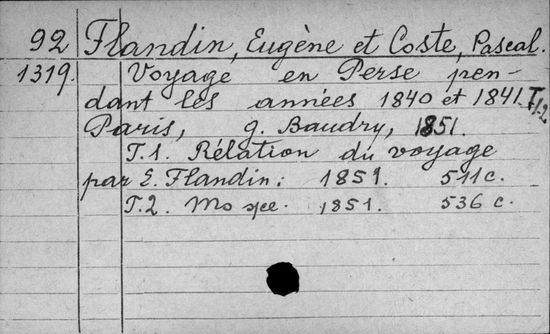 92 Flandin, Eugène et Coste, Pascal.
1319. Voyage en Perse pen-
dant les années 1840 et 1841. T.1-2
Paris, g. Baudry, 1851.
T.1. Rélation du voyage
par E. Flandin: 1851. 511 c.
T.2. То же. 1851. 536 c.